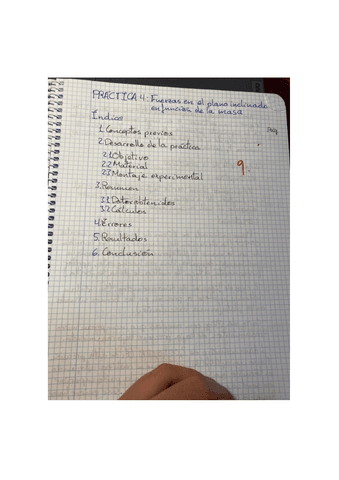 PRÁCTICA 4: Fuerzas en el plano inclinado
en función de la masa
Índice
1. Conceptos previos
2. Desarrollo de la práctica
2.1 Objetivo
2.2 Material
2.3 Montaje experimental
3. Resumen
3.1 Datos obtenidos
3.2 Cálculos
4. Errores
5. Resultados
6. Conclusión
9.